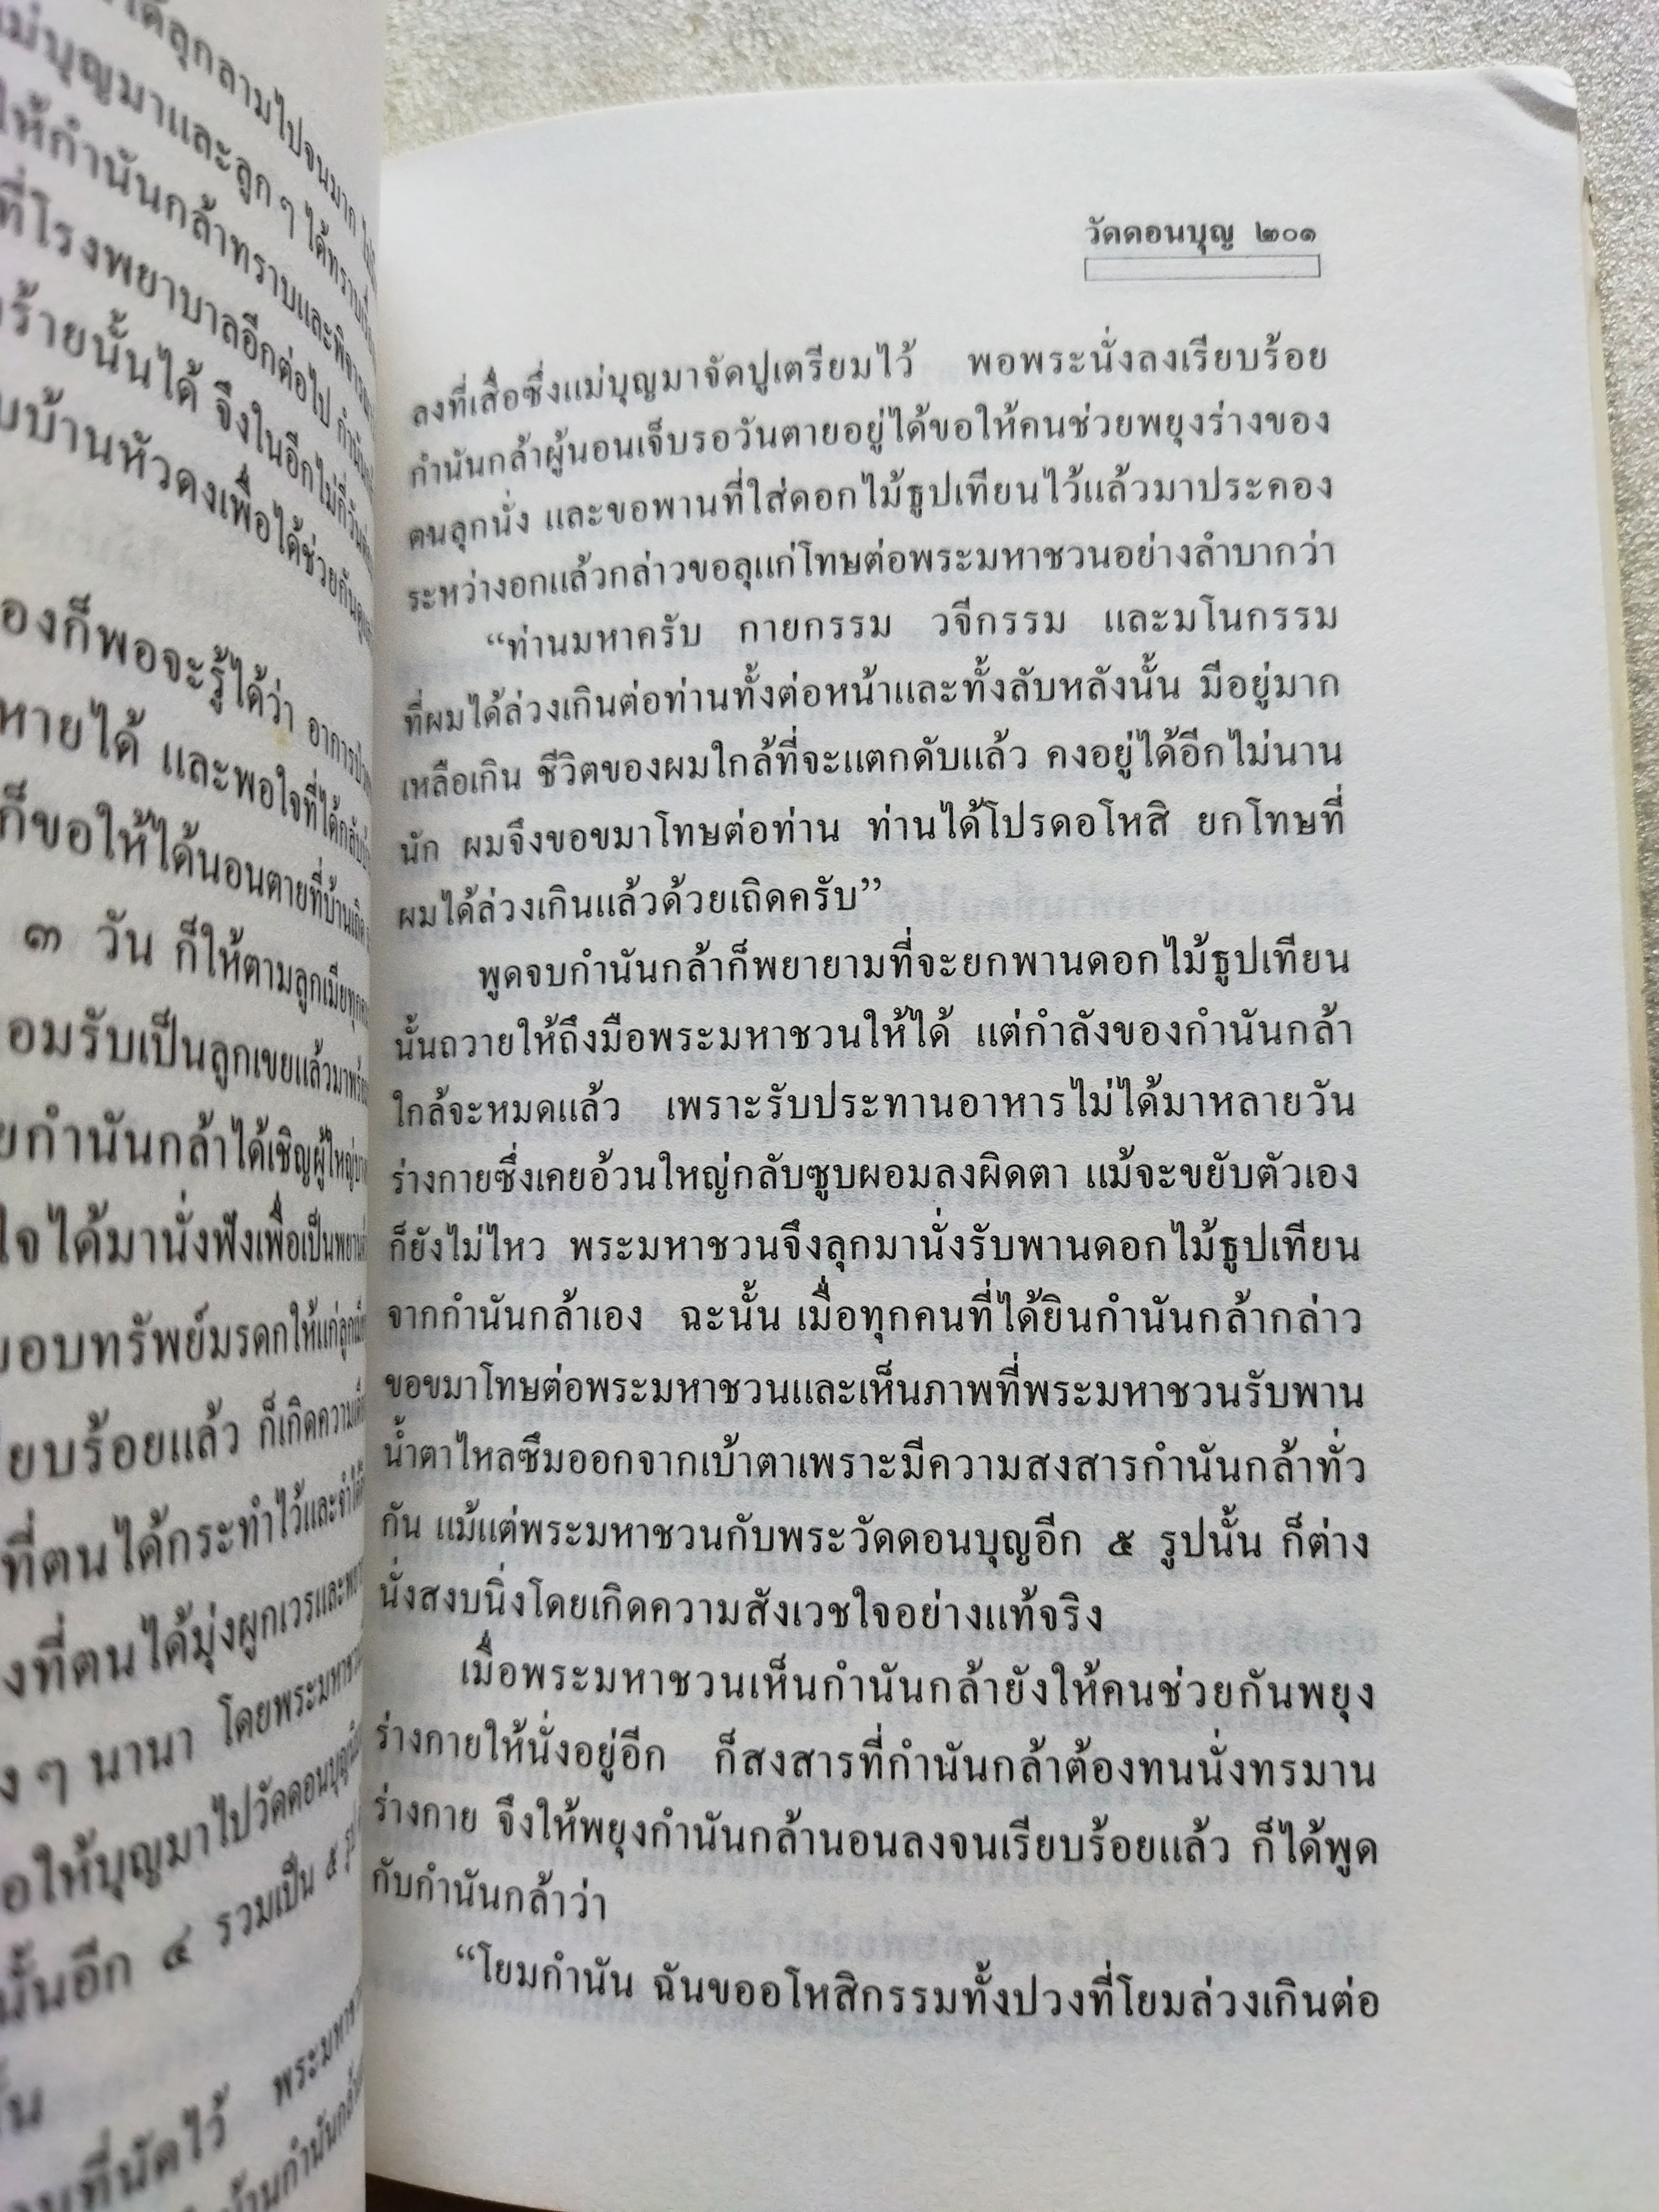 ได้ลุกลามไปจนมาก
แม่บุญมาและลูก ๆ ได้ทราบ
ให้กำนันกล้าทราบและพิจารณา
ที่โรงพยาบาลอีกต่อไป กำนัน
ร้ายนั้นได้ จึงในอีกไม่กี่วัน
บ้านหัวดงเพื่อได้ช่วยกัน
องก็พอจะรู้ได้ว่า อาการป่วย
หายได้ และพอใจที่ได้กลับ
ก็ขอให้ได้นอนตายที่บ้านเถิด
๓ วัน ก็ให้ตามลูกเมีย
อมรับเป็นลูกเขยแล้วมา
ยกำนันกล้าได้เชิญผู้ใหญ่
ใจได้มานั่งฟังเพื่อเป็นพยาน
มอบทรัพย์มรดกให้แก่ลูก
ียบร้อยแล้ว ก็เกิดความ
ที่ตนได้กระทำไว้และ
งที่ตนได้มุ่งผูกเวรและ
ง ๆ นานา โดยพระมหาชวน
อให้บุญมาไปวัดดอนบุญ
นั้นอีก ๔ รวมเป็น ๕ รูป
ั้น
ที่นัดไว้ พระมหาชวน
บ้านกำนันกล้า
วัดดอนบุญ ๒๐๑
ลงที่เสื่อซึ่งแม่บุญมาจัดปูเตรียมไว้ พอพระนั่งลงเรียบร้อย
กำนันกล้าผู้นอนเจ็บรอวันตายอยู่ได้ขอให้คนช่วยพยุงร่างของ
ตนลุกนั่ง และขอพานที่ใส่ดอกไม้ธูปเทียนไว้แล้วมาประคอง
ระหว่างอกแล้วกล่าวขอลุแก่โทษต่อพระมหาชวนอย่างลำบากว่า
“ท่านมหาครับ กายกรรม วจีกรรม และมโนกรรม
ที่ผมได้ล่วงเกินต่อท่านทั้งต่อหน้าและทั้งลับหลังนั้น มีอยู่มาก
เหลือเกิน ชีวิตของผมใกล้ที่จะแตกดับแล้ว คงอยู่ได้อีกไม่นาน
นัก ผมจึงขอขมาโทษต่อท่าน ท่านได้โปรดอโหสิ ยกโทษที่
ผมได้ล่วงเกินแล้วด้วยเถิดครับ”
พูดจบกำนันกล้าก็พยายามที่จะยกพานดอกไม้ธูปเทียน
นั้นถวายให้ถึงมือพระมหาชวนให้ได้ แต่กำลังของกำนันกล้า
ใกล้จะหมดแล้ว เพราะรับประทานอาหารไม่ได้มาหลายวัน
ร่างกายซึ่งเคยอ้วนใหญ่กลับซูบผอมลงผิดตา แม้จะขยับตัวเอง
ก็ยังไม่ไหว พระมหาชวนจึงลุกมานั่งรับพานดอกไม้ธูปเทียน
จากกำนันกล้าเอง ฉะนั้น เมื่อทุกคนที่ได้ยินกำนันกล้ากล่าว
ขอขมาโทษต่อพระมหาชวนและเห็นภาพที่พระมหาชวนรับพาน
น้ำตาไหลซึมออกจากเบ้าตาเพราะมีความสงสารกำนันกล้าทั่ว
กัน แม้แต่พระมหาชวนกับพระวัดดอนบุญอีก ๕ รูปนั้น ก็ต่าง
นั่งสงบนิ่งโดยเกิดความสังเวชใจอย่างแท้จริง
เมื่อพระมหาชวนเห็นกำนันกล้ายังให้คนช่วยกันพยุง
ร่างกายให้นั่งอยู่อีก ก็สงสารที่กำนันกล้าต้องทนนั่งทรมาน
ร่างกาย จึงให้พยุงกำนันกล้านอนลงจนเรียบร้อยแล้ว ก็ได้พูด
กับกำนันกล้าว่า
“โยมกำนัน ฉันขออโหสิกรรมทั้งปวงที่โยมล่วงเกินต่อ